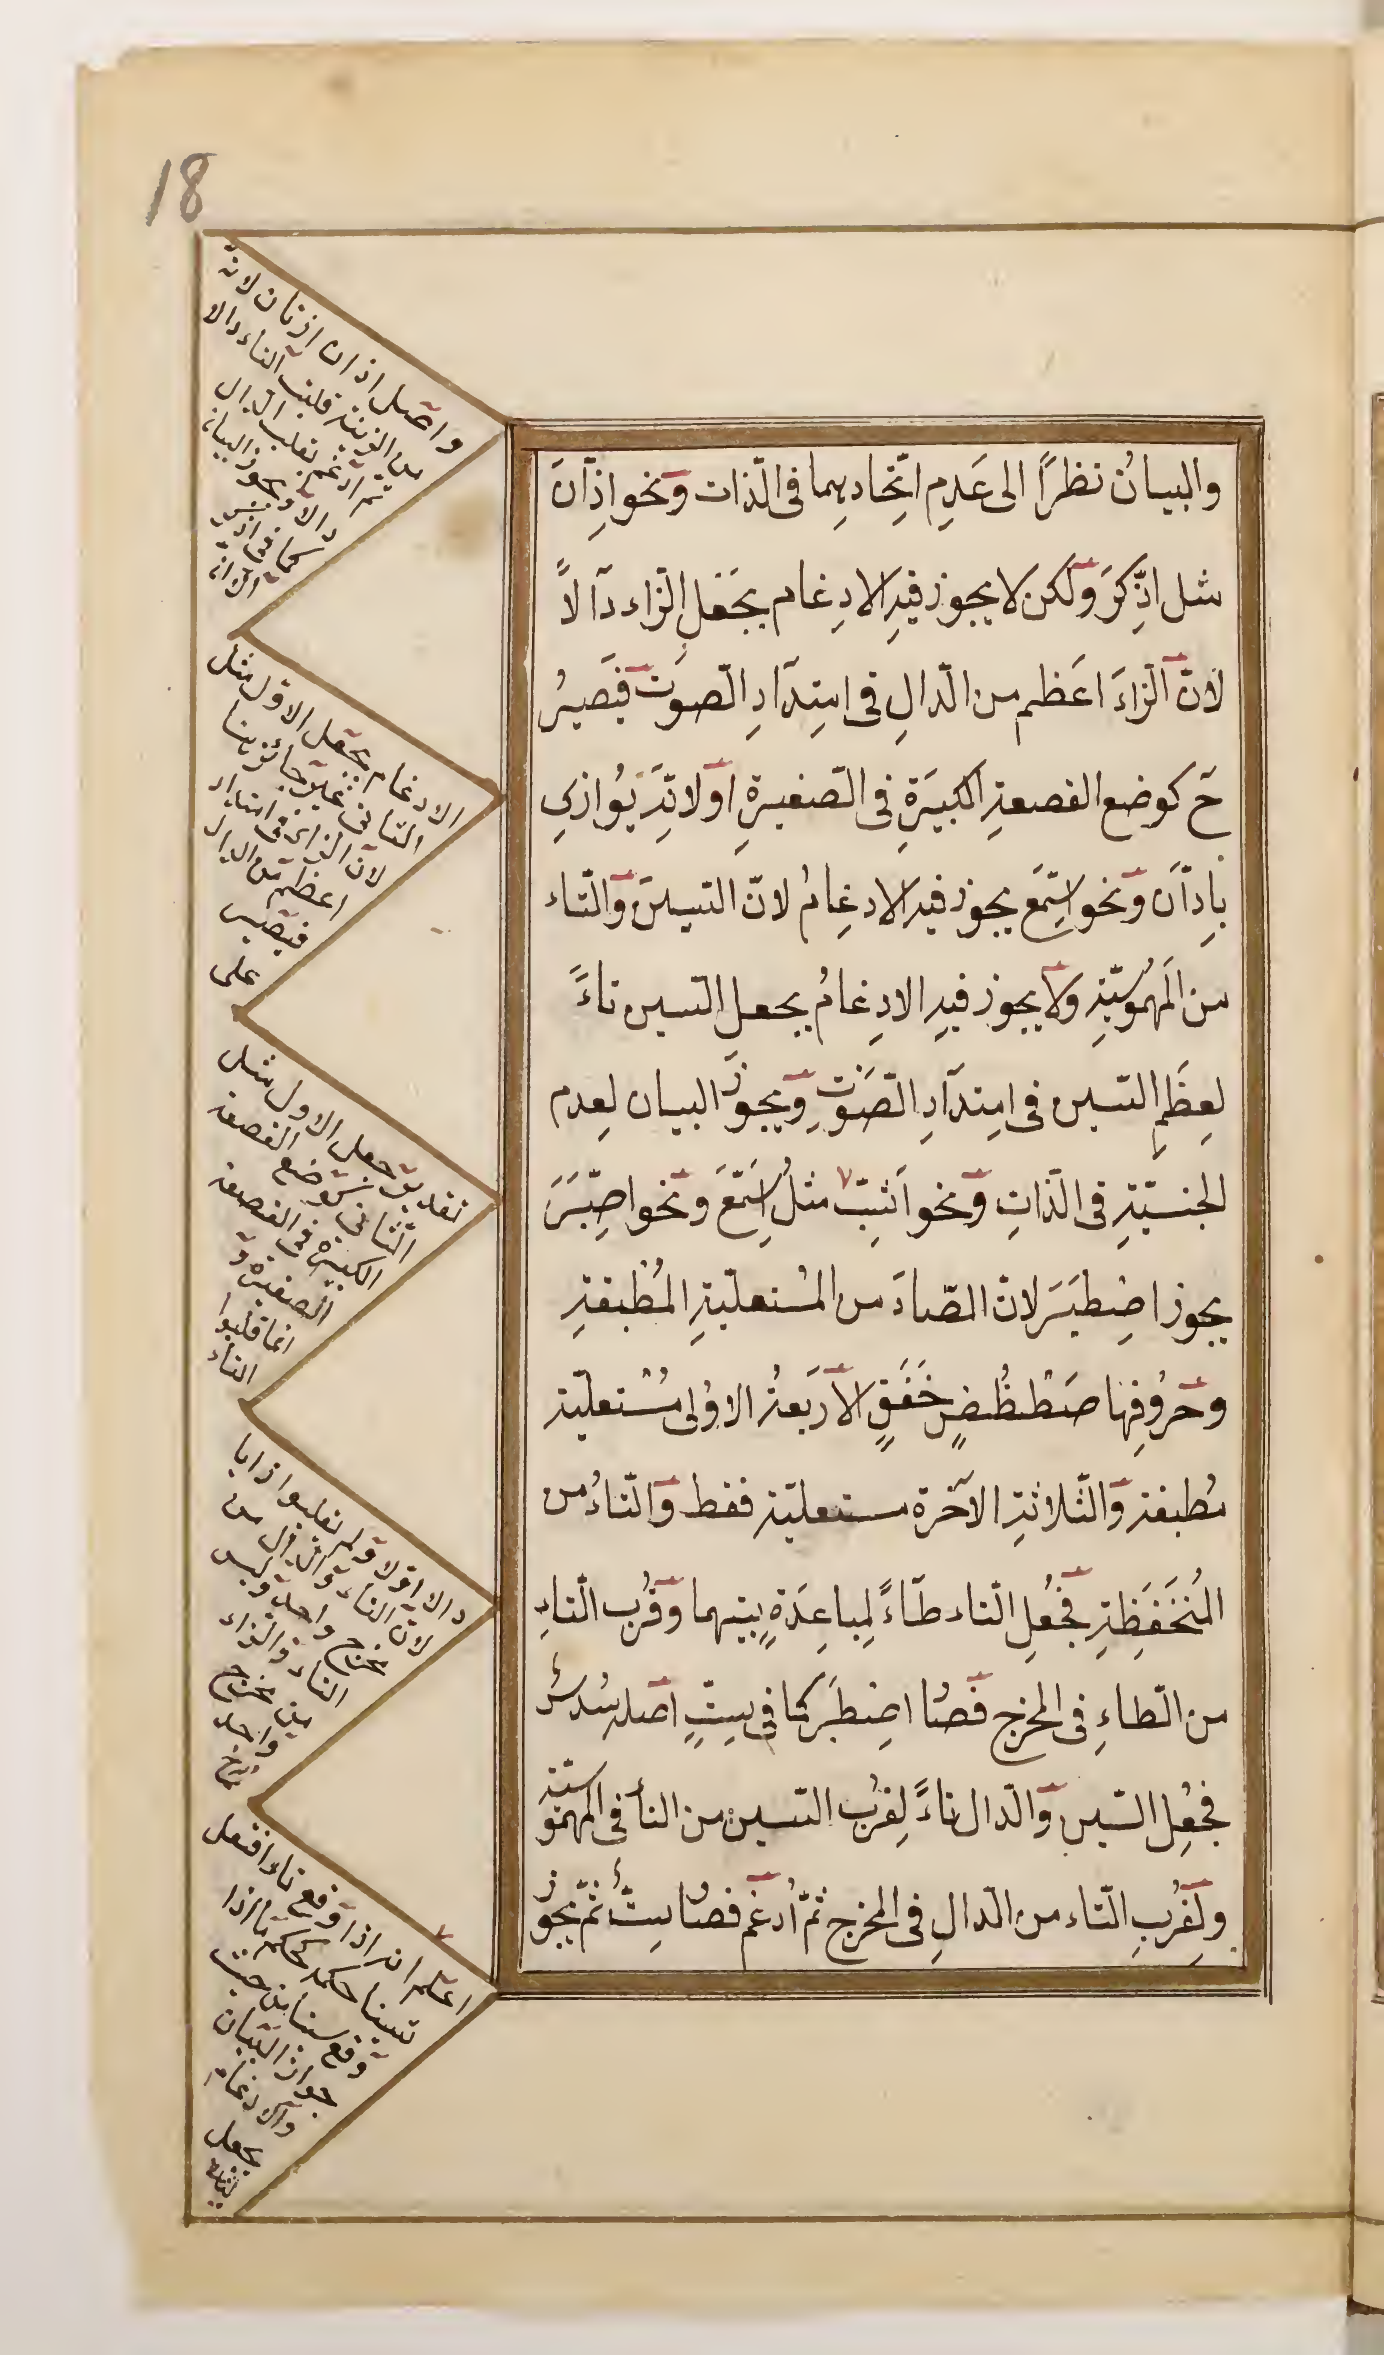 18
والبيانُ نظرًا الى عَدمِ اتِّحادهِما فى الذّات ونحو اذِّانَ
مثل اذِّكرَ ولكن لا يجوز فيهِ الادغام بجَعْلِ الزّاء دالاً
لانّ الزّاءَ اعَظم من الدّالِ فى امتِدادِ الصّوت فيَصيرُ
حَ كوضع القصعةِ الكبيَرةِ فى الصّغيرةِ اَو لانّهِ يُوازىِ
بِادّانَ ونحو اسِّمَعَ يجوز فيه الادغِامُ لانّ السّينَ والتّاء
من المَهمُوسّيةِ ولا يجوز فيهِ الادِغامُ بجعل السّين تاءً
لعِظَمِ السّين فى امتِدادِ الصّوَتِ ويَجوزُ البيان لعِدم
الجنسيّةِ فى الذّاتِ ونحو اَثبتَ مثلُ اسَّمَعَ ونحو اصِّبَرَ
يجوز اصْطبَرَ لانّ الصّادَ من المُستعليّةِ المُطْبقةِ
وحُروُفِها صَطْظُضٍ خَغَقٍ الاَربَعةُ الاوُلى مُسْتعليّة
مُطبقة والثّلاثةِ الاخَرة مستعليّة فقط والتّاءُ من
المُنخَفَظِةِ فجُعِلِ التّاء طاءً لِمباعِدَةٍ بينهما وقُرُب التّاءِ
من الطّاءِ فى المخرج فصَا اصْطبَر كما فى سِتٍّ اصَله سُدسٌ
فجُعِل السّين والدّال تاءً لِقرُب السّين من التأ فى المهموسّية
ولِقُربِ التّاء من الدّالِ فى المخرج ثمّ اُدغم فصَا سِتٌّ ثمّ يجوُز
واصل اذان ازتان لانّه
من الزينة قلبت التاء دالا
ثم ادغم بقلب الدال
دالا ويجوز البيان
كما فى
الادغام بجعل الاول مثل
الثانى غير جائز هنا
لان الزاى فى امتداد
اعظم من الدال
فيصير
على
تقدير جعل الاول مثل
الثانى كوضع القصعة
الكبيرة فى القصعة
الصغيرة و
انما قلبوا
التاء
دالا اولا ولم يقلبوا زايا
لان التاء والدال من
مخرج واحد وليس
التاء والزاء
من مخرج
واحد
شرح
اعلم انه اذا وقع تاء افتعل
سينا حكمه كحكم ما اذا
وقع سينا من حيث
جواز البيان
والادغام
بجعل